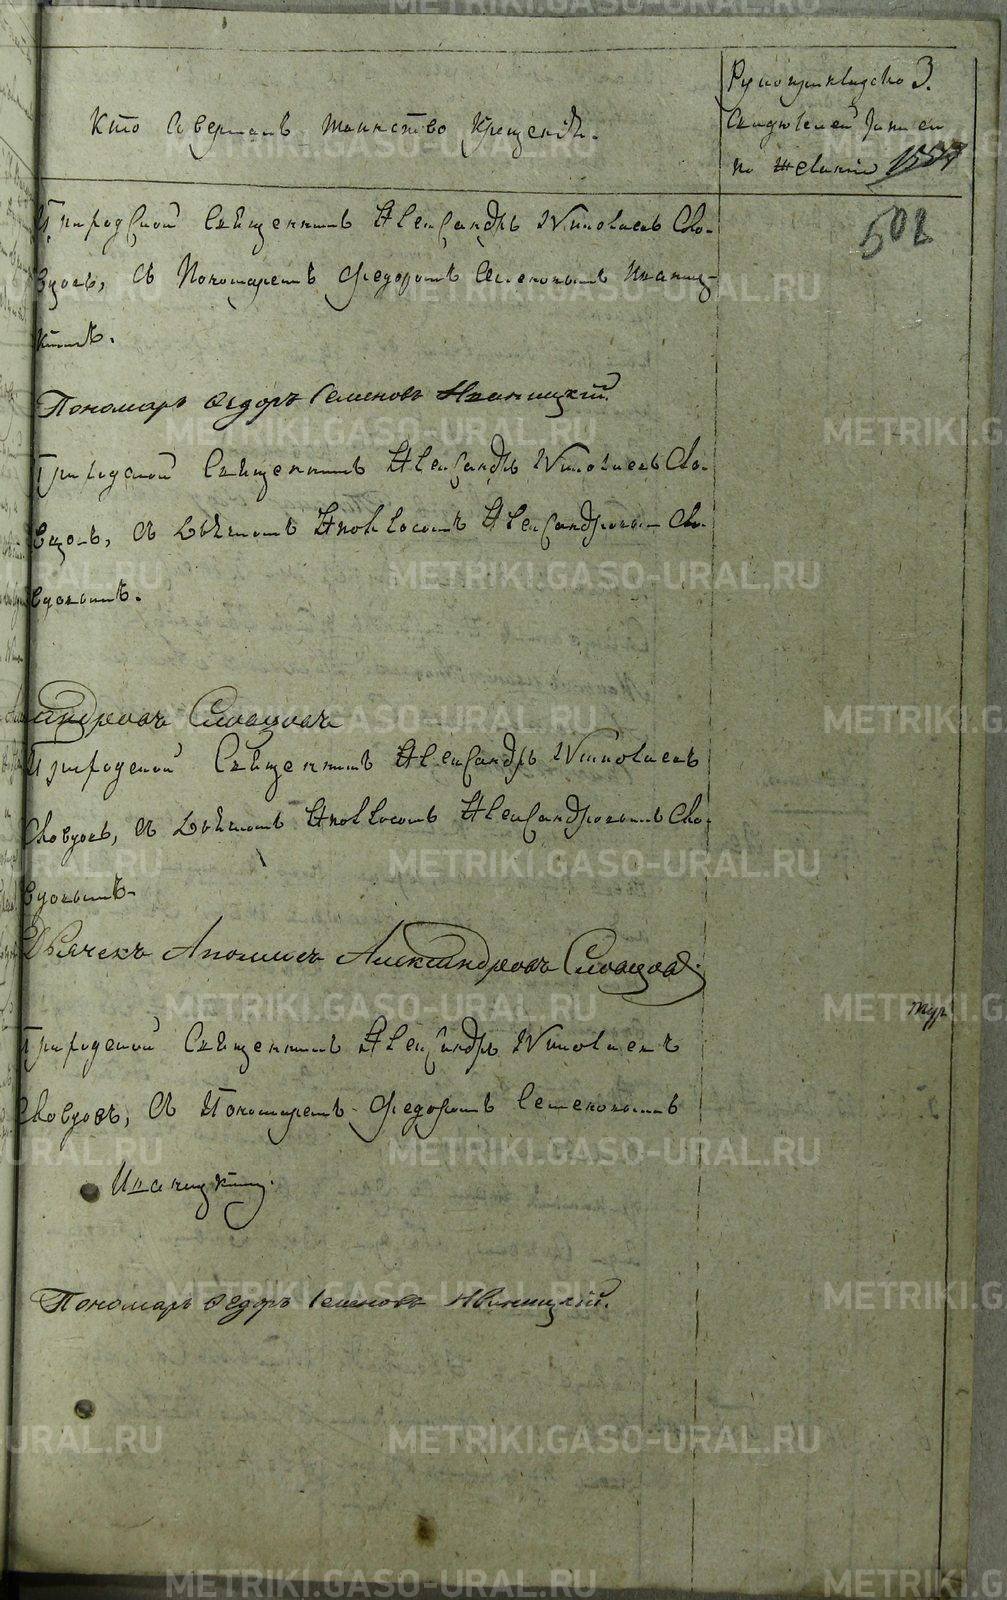 Кто совершалъ таинство крещенія.
Рукоприкладство 3.
свидѣтелей записи
по желанію
502
Природской Священникъ Александръ Николаевъ Сло-
вцовъ, съ Пономаремъ Федоромъ Семеновымъ Иваниц-
кимъ.
Пономарь Ѳедоръ Семеновъ Иваницкій.
Природской Священникъ Александръ Николаевъ Сло-
вцовъ, съ Дьячкомъ Аполлосомъ Александровым Сло-
вцовымъ.
андровъ Словцовъ
Природской Священникъ Александръ Николаевъ
Словцовъ, съ Дьячкомъ Аполлосомъ Александровымъ Сло-
вцовымъ.
Дьячекъ Аполлосъ Александровъ Словцовъ.
Природской Священникъ Александръ Николаевъ
Словцовъ, съ Пономаремъ Федоромъ Семеновымъ
Иваницкимъ.
Пономарь Ѳедоръ Семеновъ Иваницкій.
METRIKI.GASO-URAL.RU